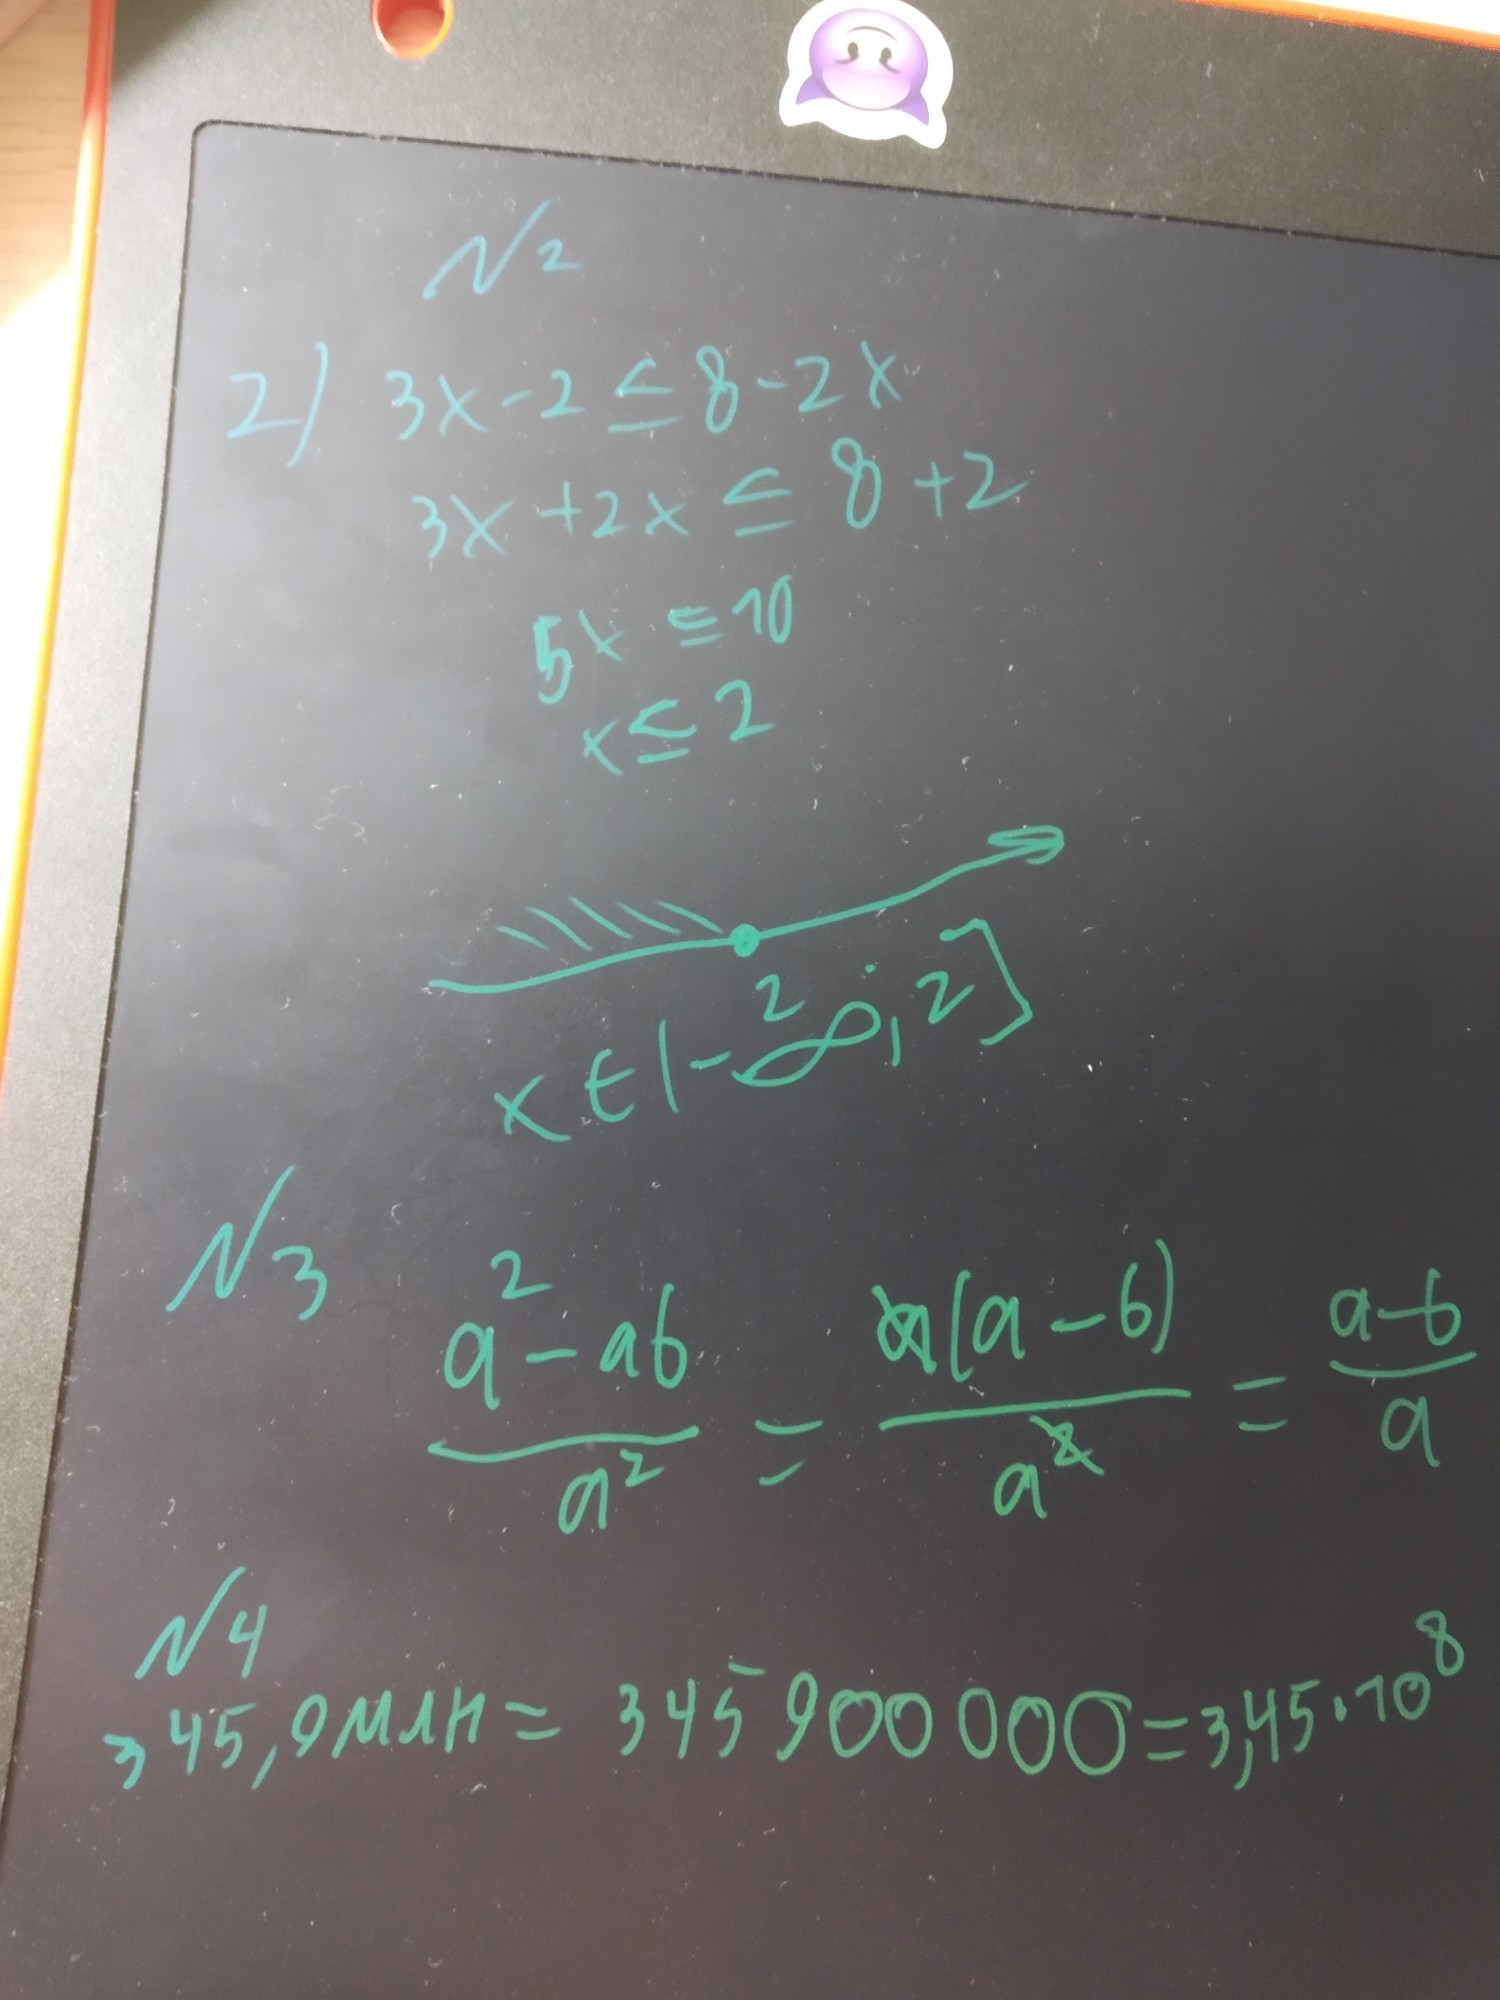 №2
2) 3x-2≤8-2x
3x+2x≤8+2
5x≤10
x≤2
2
x∈(-∞;2]
№3 (a²-ab)/a² = a(a-b)/a² = (a-b)/a
№4
345,9млн=345 900 000=3,45·10⁸